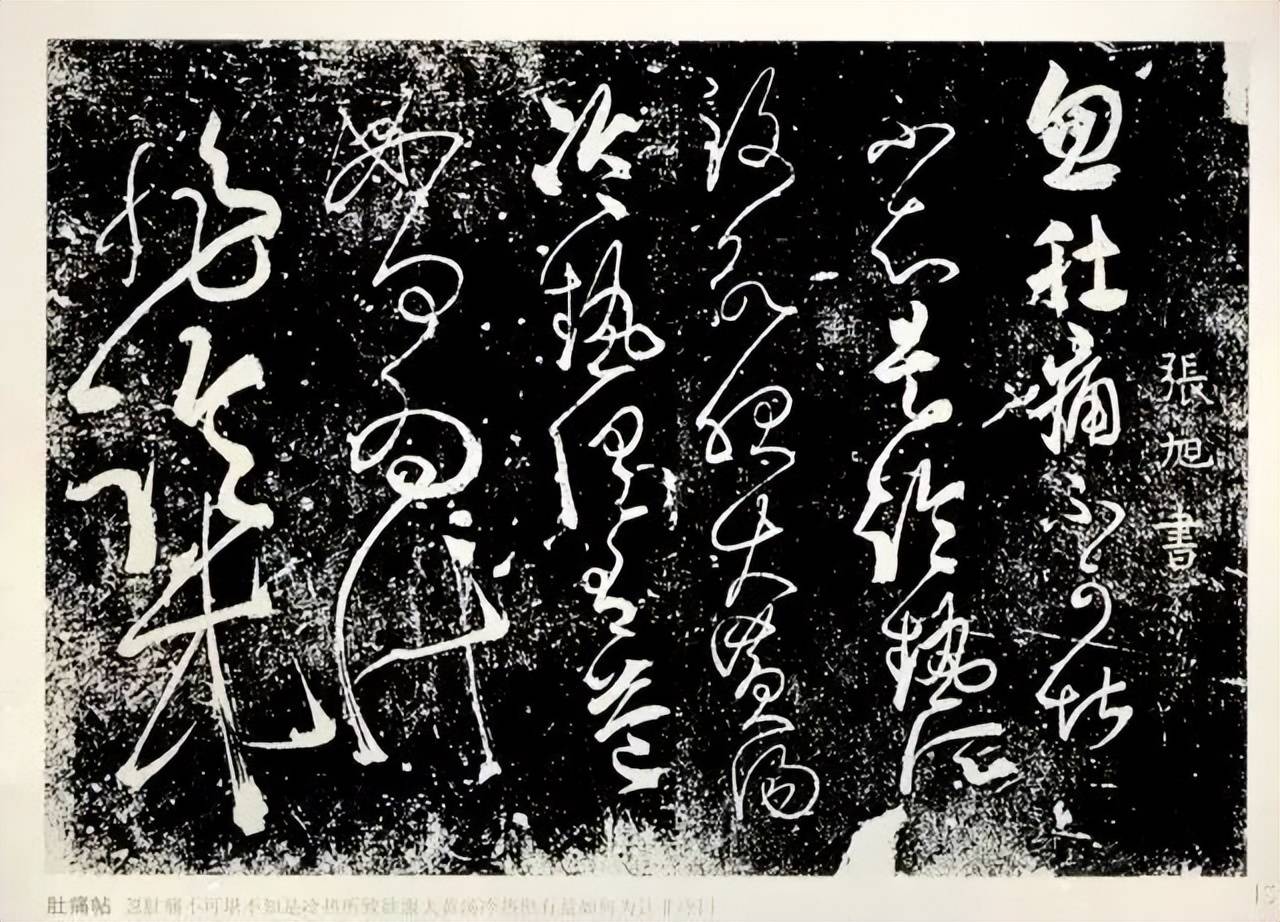 張旭書
忽肚痛不可堪
不知是冷熱所
致欲服大黃湯
冷熱俱有益
如何為計
非臨床
肚痛帖 忽肚痛不可堪不知是冷热所致欲服大黄汤冷热俱有益如何为计非临床